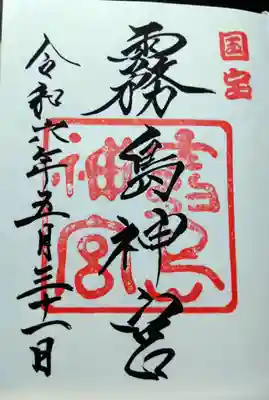 国宝
霧島神宮
霧島神宮
令和六年五月三十一日